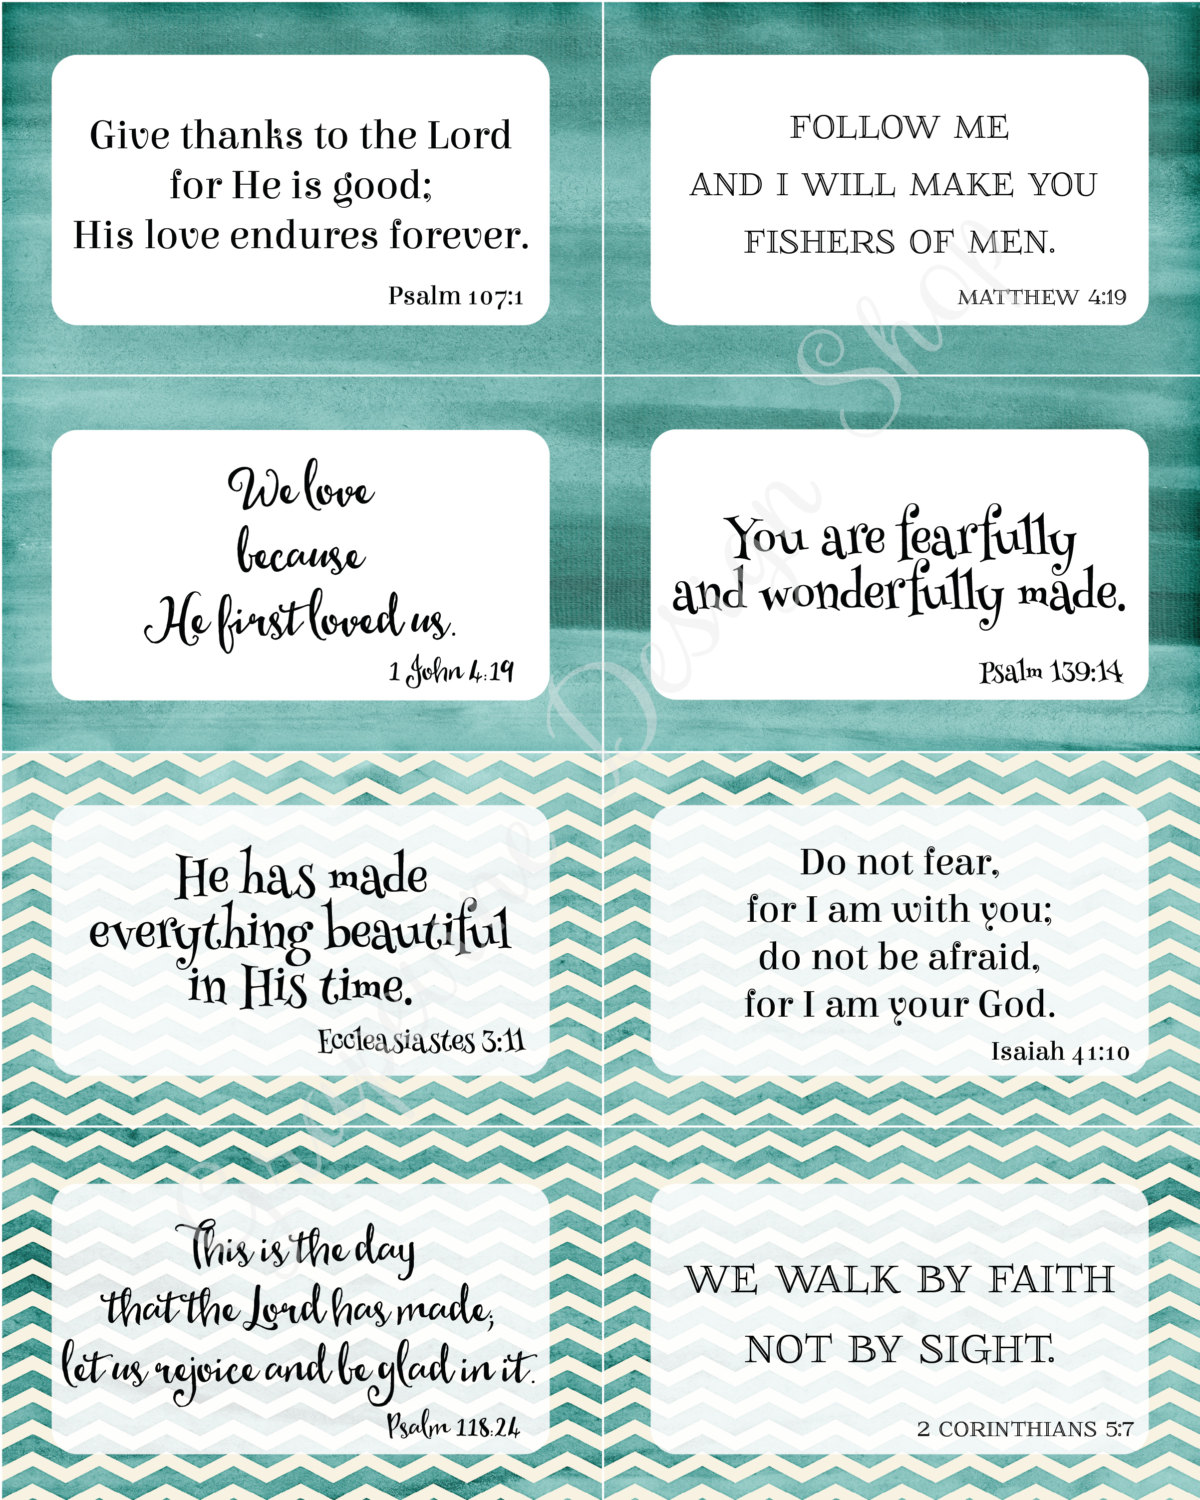 Give thanks to the Lord
for He is good;
His love endures forever.
Psalm 107:1
FOLLOW ME
AND I WILL MAKE YOU
FISHERS OF MEN.
MATTHEW 4:19
We love
because
He first loved us.
1 John 4:19
You are fearfully
and wonderfully made.
Psalm 139:14
He has made
everything beautiful
in His time.
Eccleasiastes 3:11
Do not fear,
for I am with you;
do not be afraid,
for I am your God.
Isaiah 41:10
This is the day
that the Lord has made;
let us rejoice and be glad in it.
Psalm 118:24
WE WALK BY FAITH
NOT BY SIGHT.
2 CORINTHIANS 5:7
Design Shop